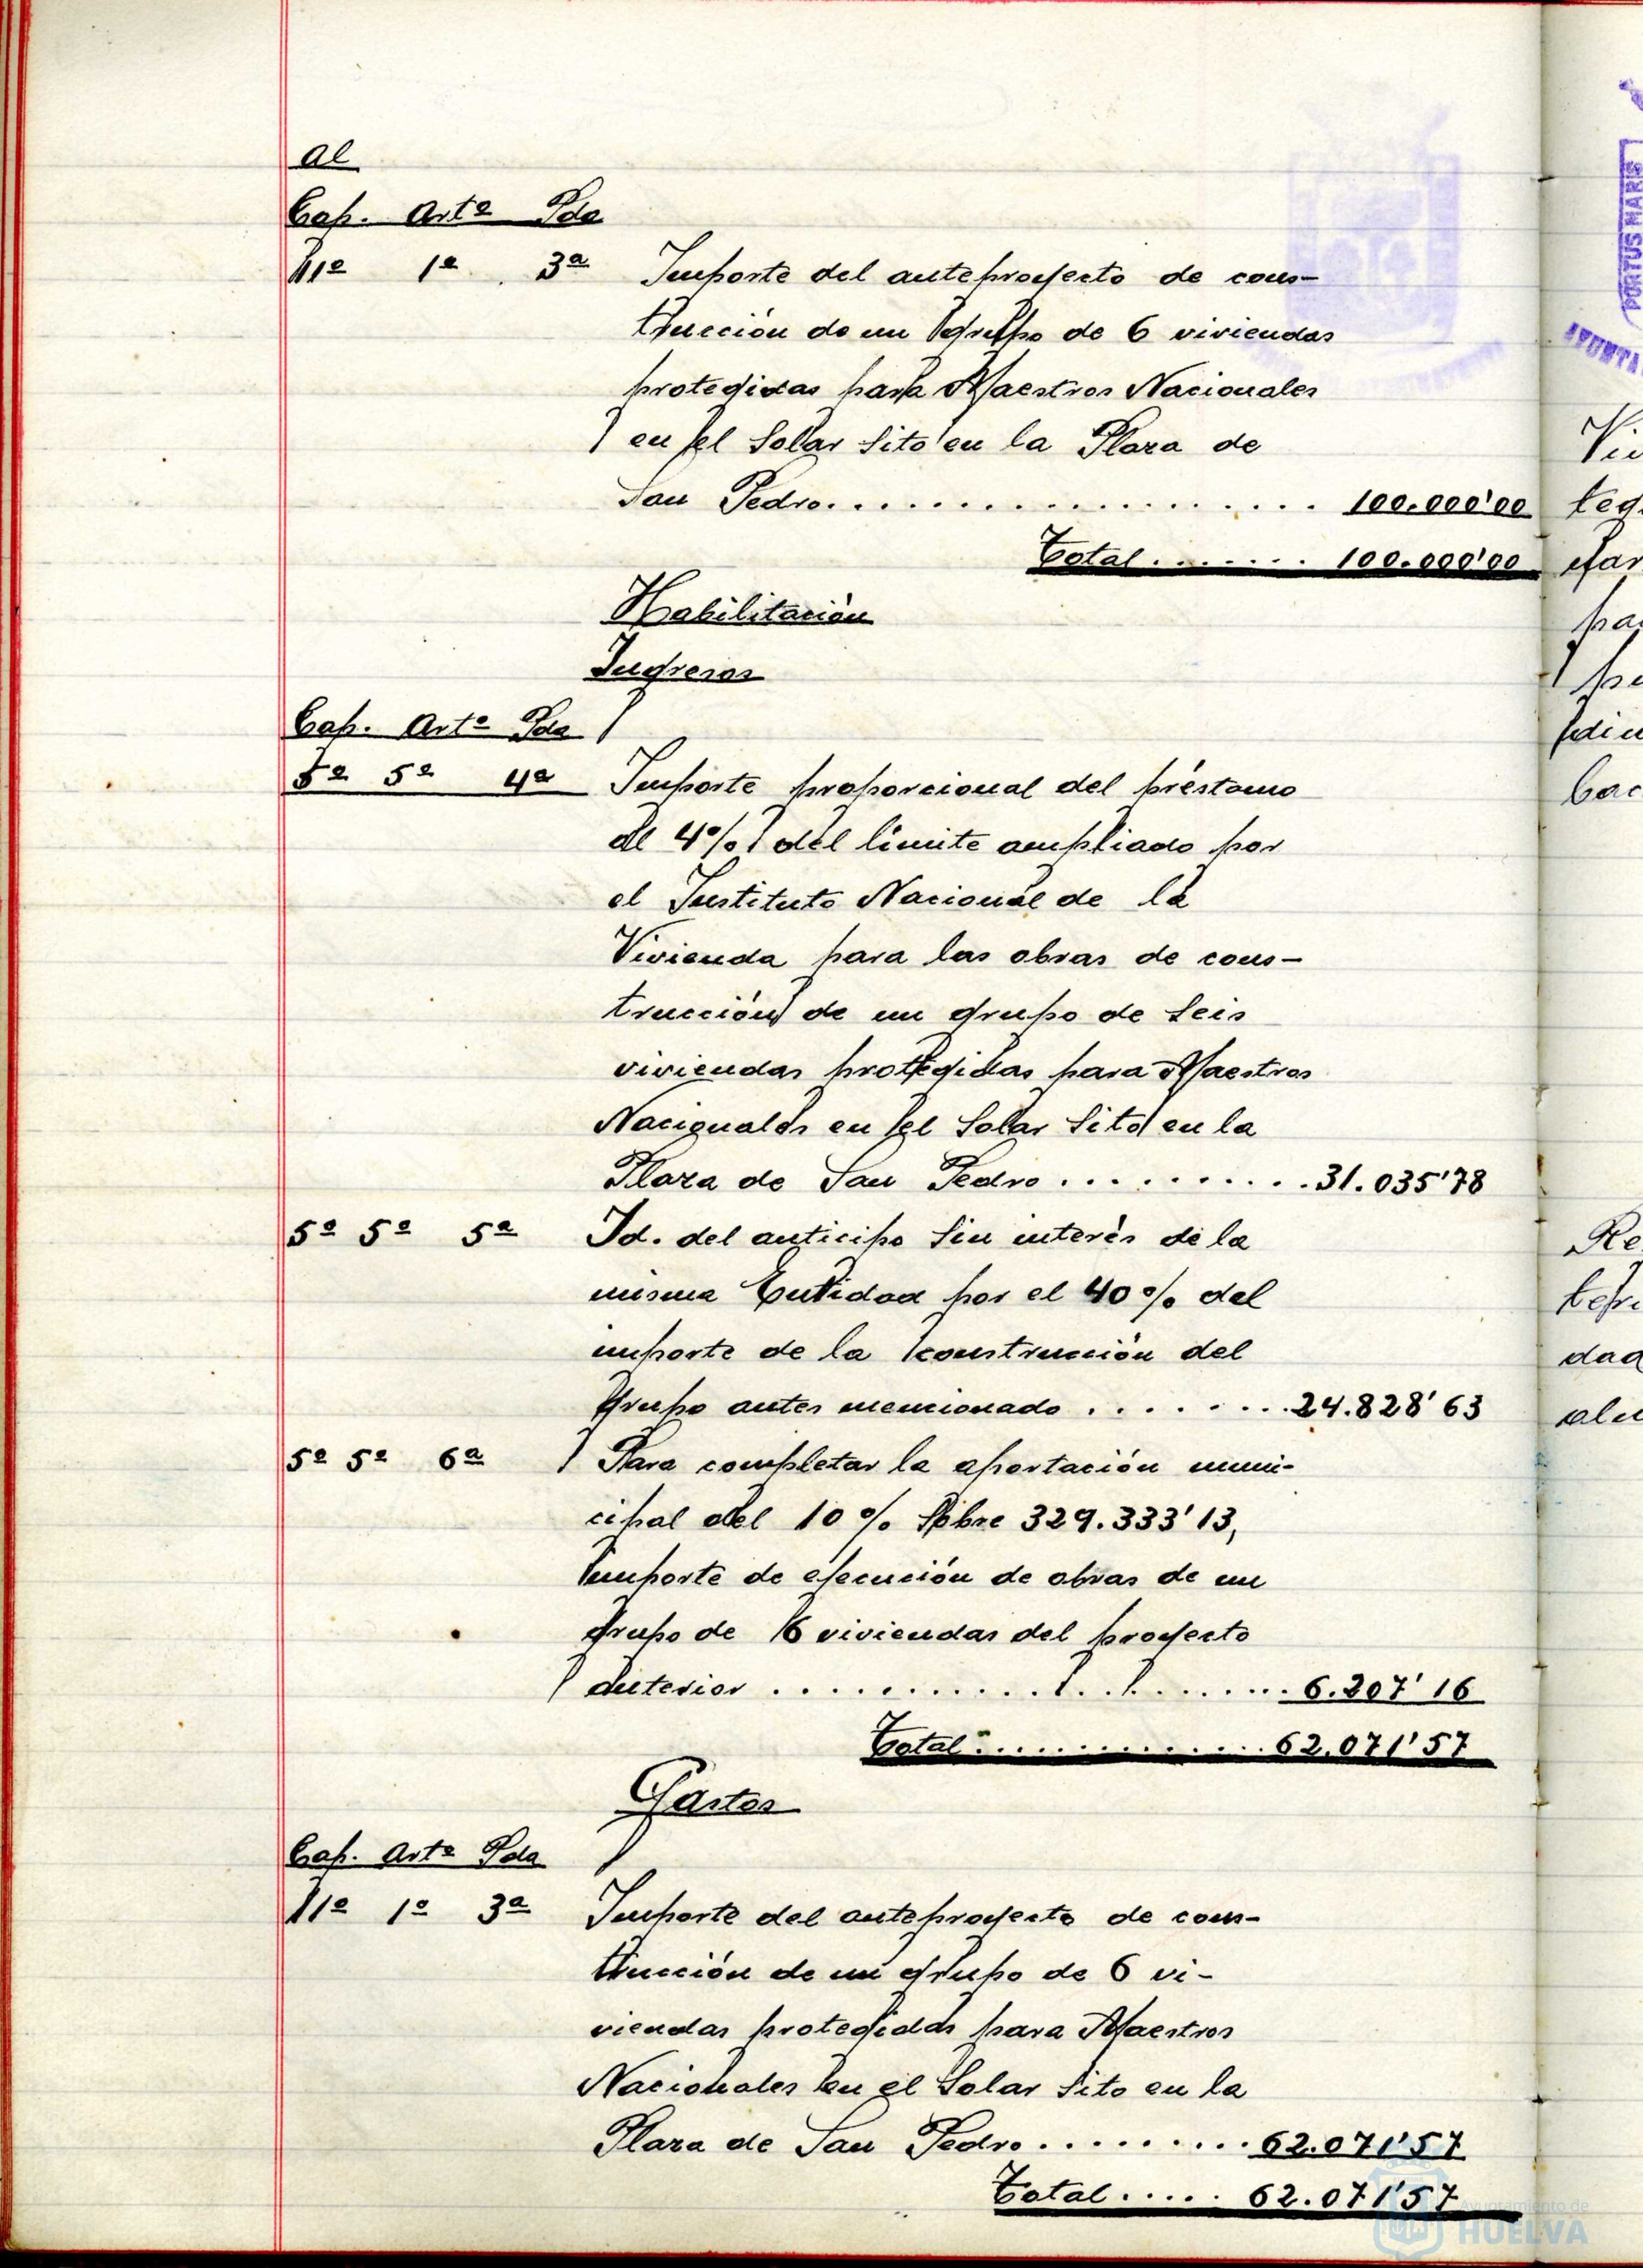 Al
Cap. Artº Pda
11º 1º 3ª Importe del anteproyecto de cons-
trucción de un Grupo de 6 viviendas
protegidas para Maestros Nacionales
en el Solar Sito en la Plaza de
San Pedro. . . . . . . . . . . . . . . . . . . 100.000'00
Total . . . . . . . 100.000'00
Habilitación
Ingresos
Cap. Artº Pda
5º 5º 4ª Importe proporcional del préstamo
al 4% del límite ampliado por
el Instituto Nacional de la
Vivienda para las obras de cons-
trucción de un grupo de seis
viviendas protegidas para Maestros
Nacionales en el Solar Sito en la
Plaza de San Pedro . . . . . . . . . . 31.035'78
5º 5º 5ª Id. del anticipo sin interés de la
misma Entidad por el 40% del
importe de la construcción del
Grupo antes mencionado . . . . . . . . 24.828'63
5º 5º 6ª Para completar la aportación muni-
cipal del 10% sobre 329.333'13,
importe de ejecución de obras de un
grupo de 6 viviendas del proyecto
Anterior . . . . . . . . . . . . . . . . . . 6.207'16
Total . . . . . . . . . . . . . 62.071'57
Gastos
Cap. Artº Pda
11º 1º 3ª Importe del anteproyecto de cons-
trucción de un grupo de 6 vi-
viendas protegidas para Maestros
Nacionales en el Solar Sito en la
Plaza de San Pedro . . . . . . . . . 62.071'57
Total . . . . . 62.071'57
PORTUS MARIS
Ayuntamiento de
HUELVA